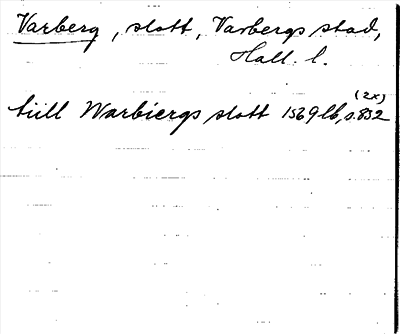 Varberg, slott, Varbergs stad,
Hall. l.
(2x)
tüll Warbiergs slott 1569 lb, s. 832